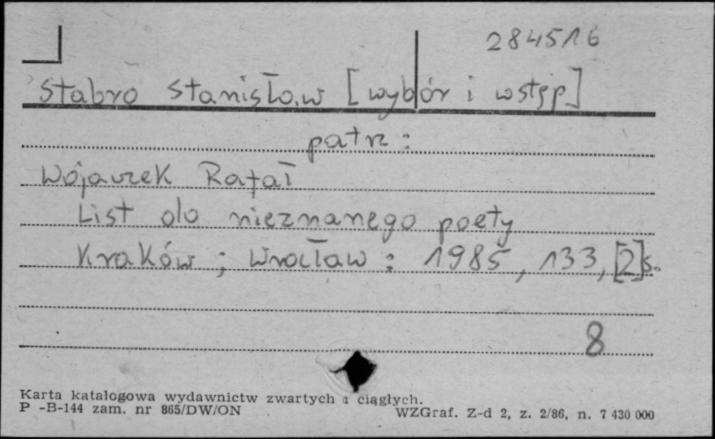 284516
Stabro Stanisław [wybór i wstęp]
patrz:
Wojaczek Rafał
List do nieznanego poety
Kraków; Wrocław: 1985, 133, [2]s.
8
Karta katalogowa wydawnictw zwartych i ciągłych.
P -B-144 zam. nr 865/DW/ON WZGraf. Z-d 2, z. 2/86, n. 7 430 000